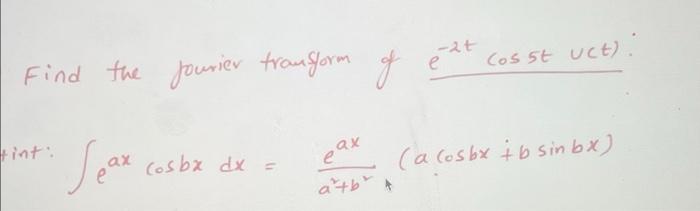 Find the fourier transform of e^-2t cos 5t u(t):
Hint: ∫e^ax cosbx dx = e^ax/(a²+b²) (a cosbx + b sin bx)